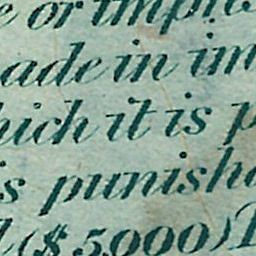 or
ade in im
hich it is p
is punish
($5,000)